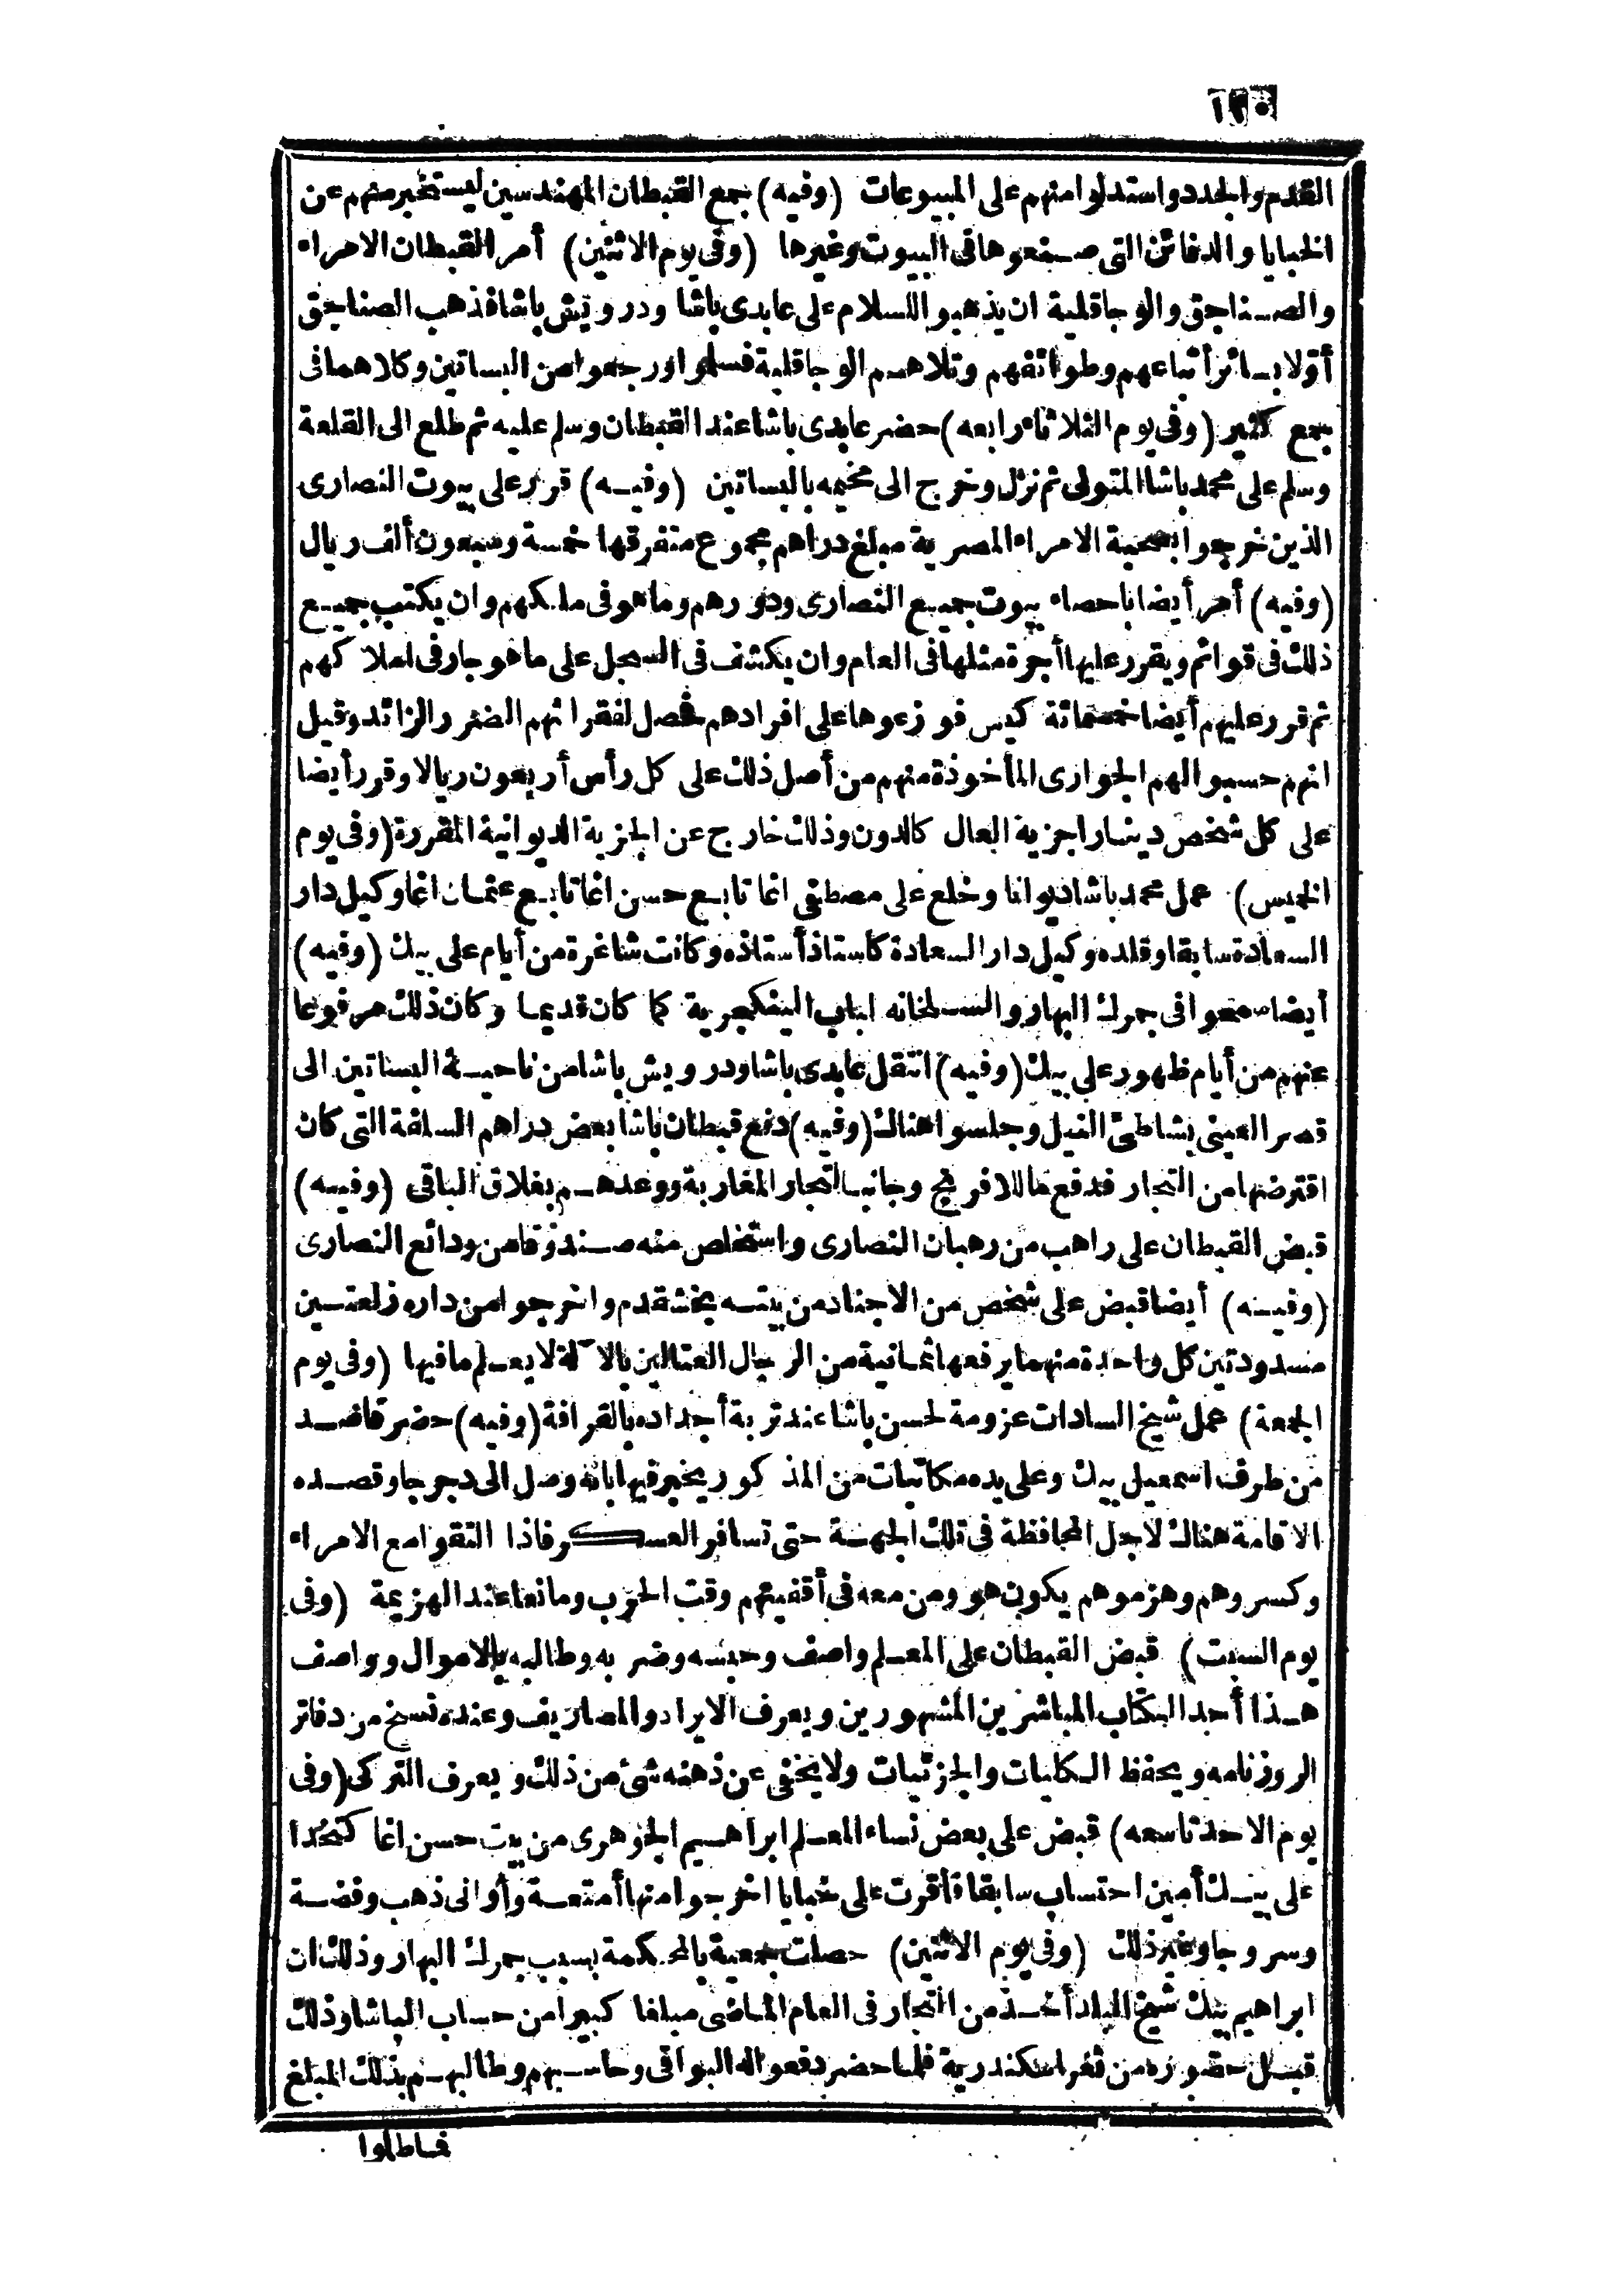 القدم والجدد واستدلوا منهم على المبيوعات (وفيه) جمع القبطان المهندسين ليستخبر منهم عن
الخبايا والدفائن التى صنعوها فى البيوت وغيرها (وفى يوم الاثنين) أمر القبطان الامراء
والصناجق والوجاقلية ان يذهبوا للسلام على عابدى باشا ودرويش باشا فذهب الصناجق
أولا بسائر أتباعهم وطوائفهم وتلاهم الوجاقلية فسلموا ورجعوا من البساتين وكلاهما فى
جمع كثير (وفى يوم الثلاثاء رابعه) حضر عابدى باشا عند القبطان وسلم عليه ثم طلع الى القلعة
وسلم على محمد باشا المتولى ثم نزل وخرج الى مخيمه بالبساتين (وفيه) قرر على بيوت النصارى
الذين خرجوا بصحبة الامراء المصرية مبلغ دراهم مجموع متفرقها خمسة وسبعون ألف ريال
(وفيه) أمر أيضا باحصاء بيوت جميع النصارى ودورهم وما هو فى ملكهم وان يكتب جميع
ذلك فى قوائم ويقرر عليها أجرة مثلها فى العام وان يكشف فى السجل على ما هو جار فى املاكهم
ثم قرر عليهم أيضا خمسمائة كيس فوزعوها على افرادهم فحصل لفقرائهم الضرر الزائد وقيل
انهم حسبوا لهم الجوارى المأخوذة منهم من أصل ذلك على كل رأس أربعون ريالا وقرر أيضا
على كل شخص دينارا جزية العال كالدون وذلك خارج عن الجزية الديوانية المقررة (وفى يوم
الخميس) عمل محمد باشا ديوانا وخلع على مصطفى اغا تابع حسن اغا تابع عثمان اغا وكيل دار
السعادة سابقا وقلده وكيل دار السعادة كاستاذ أستاذه وكانت شاغرة من أيام على بيك (وفيه)
أيضا سمعوا فى جمرك البهار والسلخانه لباب الينكجرية كما كان قديما وكان ذلك مرفوعا
عنهم من أيام ظهور على بيك (وفيه) انتقل عابدى باشا ودرويش باشا من ناحية البساتين الى
قصر العينى بشاطئ النيل وجلسوا هناك (وفيه) دفع قبطان باشا بعض دراهم السلفة التى كان
اقترضها من التجار فدفع ما للافرنج وجانبا لتجار المغاربة ووعدهم بغلاق الباقى (وفيه)
قبض القبطان على راهب من رهبان النصارى واستخلص منه صندوقا من ودائع النصارى
(وفيه) أيضا قبض على شخص من الاجناد من بيته بخشقدم واخرجوا من داره زلعتين
مسدودتين كل واحدة منهما يرفعها ثمانية من الرجال العتالين بالآلة لا يعلم ما فيها (وفى يوم
الجمعة) عمل شيخ السادات عزومة لحسن باشا عند تربة أجداده بالقرافة (وفيه) حضر قاصد
من طرف اسمعيل بيك وعلى يده مكاتبات من المذكور يخبر فيها بانه وصل الى دجرجا وقصده
الاقامة هناك لاجل المحافظة فى تلك الجهة حتى تسافر العسكر فاذا التقوا مع الامراء
وكسروهم وهزموهم يكون هو ومن معه فى أقفيتهم وقت الحرب ومانعا عند الهزيمة (وفى
يوم السبت) قبض القبطان على المعلم واصف وحبسه وضربه وطالبه بالاموال وواصف
هذا أحد الكتاب المباشرين المشهورين ويعرف الايراد والمصاريف وعنده نسخ من دفاتر
الروزنامه ويحفظ الكليات والجزئيات ولا يخفى عن ذهنه شئ من ذلك ويعرف التركى (وفى
يوم الاحد تاسعه) قبض على بعض نساء المعلم ابراهيم الجوهرى من بيت حسن اغا كتخدا
على بيك أمين احتساب سابقا فأقرت على خبايا اخرجوا منها أمتعة وأوانى ذهب وفضة
وسروجا وغير ذلك (وفى يوم الاثنين) حصلت جمعية بالمحكمة بسبب جمرك البهار وذلك ان
ابراهيم بيك شيخ البلد أخذ من التجار فى العام الماضى مبلغا كبيرا من حساب الباشا وذلك
قبل حضوره من ثغر اسكندرية فلما حضر دفعوا له البواقى وحاسبهم وطالبهم بذلك المبلغ
فماطلوا